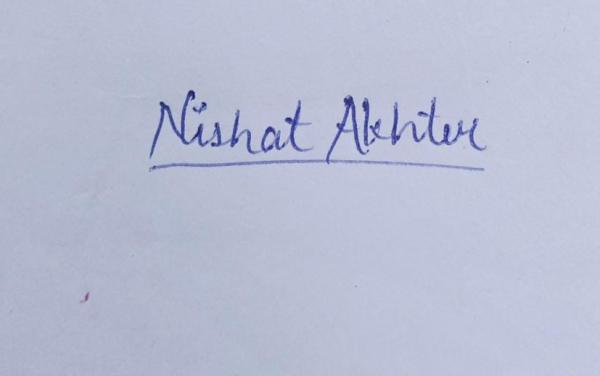 Nishat Akhter